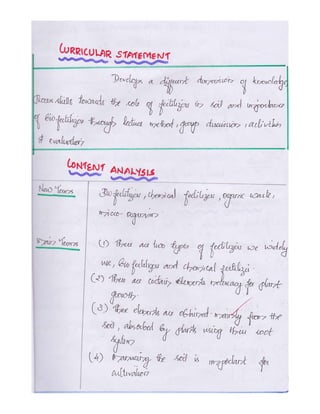 CURRICULAR STATEMENT
Develops a different dimension of knowledge
towards the role of fertilizer in soil and importance
of biofertilizer through lecture method, group discussion, activities
& evaluation
CONTENT ANALYSIS
New Terms
Bio fertilizer, chemical fertilizer, organic waste,
micro-organism
(1) There are two types of fertilizer we widely
use, bio fertilizer and chemical fertilizer
(2) There are certain elements necessary for plant
growth.
(3) These elements are obtained mainly from the
soil, absorbed by plants using their root
system
(4) Manuring the soil is important for
cultivation